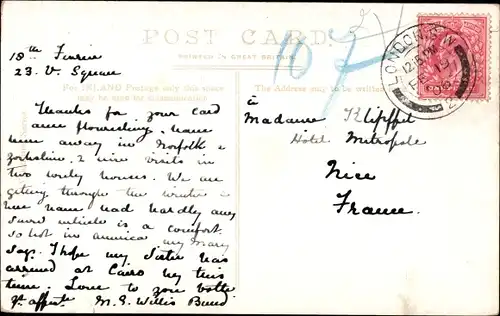 POST CARD.
PRINTED IN GREAT BRITAIN.
For INLAND Postage only this space may be used for communication
The Address may be written
18th
23. V. Square
Thanks for your card
am flourishing, have
been away in Norfolk &
Yorkshire, 2 nice visits in
two lovely houses. We are
getting through the winter &
have had hardly any
snow which is a comfort.
so hot in america my Mary
says. I hope my Sister has
arrived at Cairo by this
time. Love to you both
yr affect. M. G. Willis Bund
à
Madame Klipffel
Hotel Metropole
Nice
France.
LONDON
12.15 PM